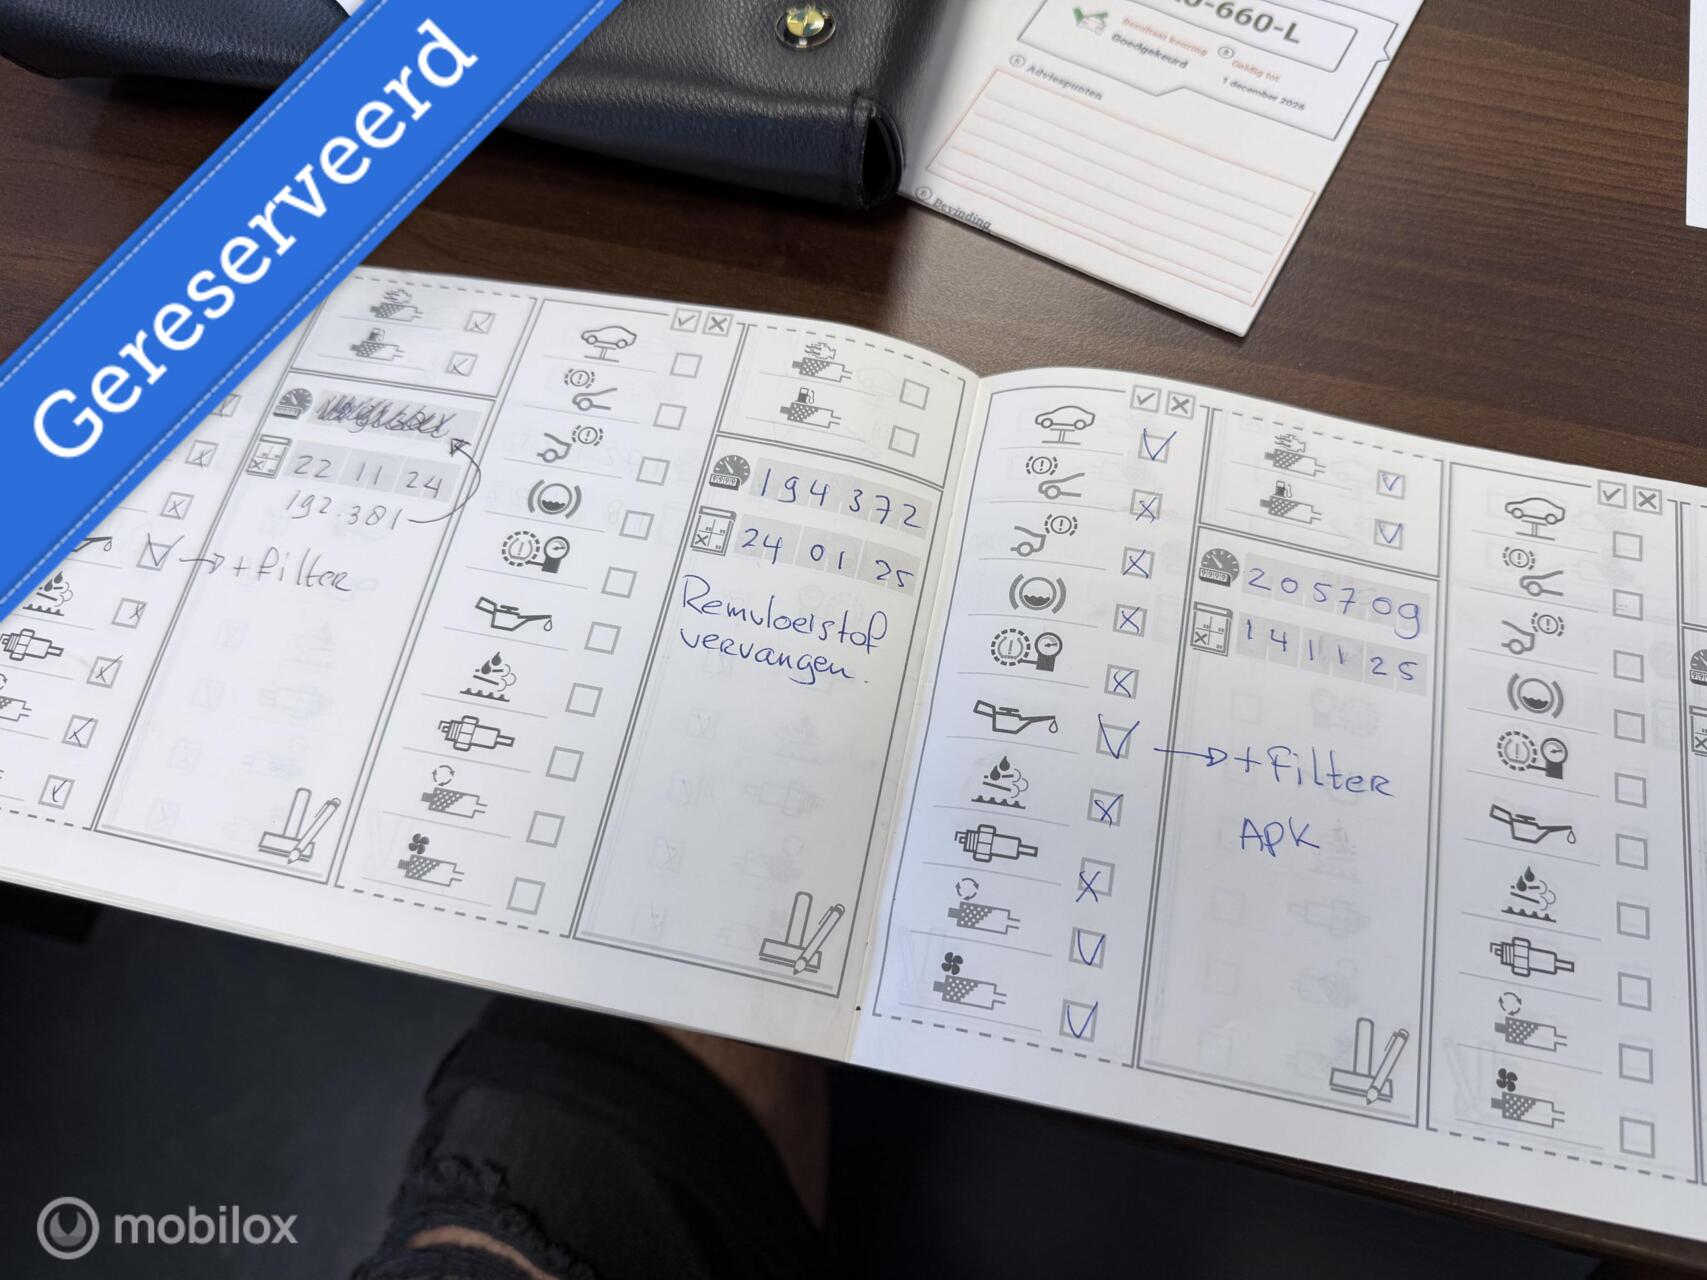 Gereserveerd
0-660-L
Resultaat keuring
Goedgekeurd
Geldig tot
1 december 2026
Adviespunten
Bevinding
22 11 24
192.381
+ filter
194372
24 01 25
Remvloeistof
vervangen.
205709
14 11 25
+ filter
APK
mobilox